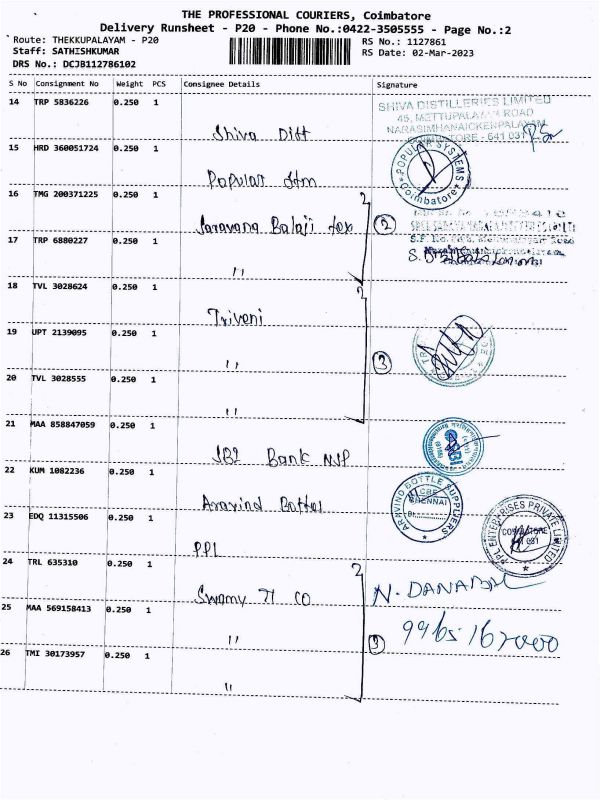 THE PROFESSIONAL COURIERS, Coimbatore
Delivery Runsheet - P20 - Phone No.:0422-3505555 - Page No.:2
Route: THEKKUPALAYAM - P20
RS No.: 1127861
Staff: SATHISHKUMAR
RS Date: 02-Mar-2023
DRS No.: DCJB112786102
S No Consignment No Weight PCS Consignee Details Signature
14 TRP 5836226 0.250 1
SHIVA DISTILLERIES LIMITED
45, METTUPALAYAM ROAD
NARASIMHANAICKENPALAYAM
COIMBATORE - 641 031
Shiva Distt
15 HRD 360051724 0.250 1
POPULAR SYSTEMS
Coimbatore
Popular Stm
16 TMG 200371225 0.250 1
Saravana Balaji tex
2
17 TRP 6880227 0.250 1
"
18 TVL 3028624 0.250 1
Triveni
19 UPT 2139095 0.250 1
"
3
20 TVL 3028555 0.250 1
"
21 MAA 858847059 0.250 1
SBI Bank NSP
SBI
22 KUM 1082236 0.250 1
Aravind Bottel
ARAVIND BOTTLE SUPPLIERS
CBE
CHENNAI
23 EDQ 11315506 0.250 1
PPL
PPL ENTERPRISES PRIVATE LIMITED
COIMBATORE
641 031
24 TRL 635310 0.250 1
Swamy & CO
N. DANABAL
25 MAA 569158413 0.250 1
"
3
26 TMI 30173957 0.250 1
"